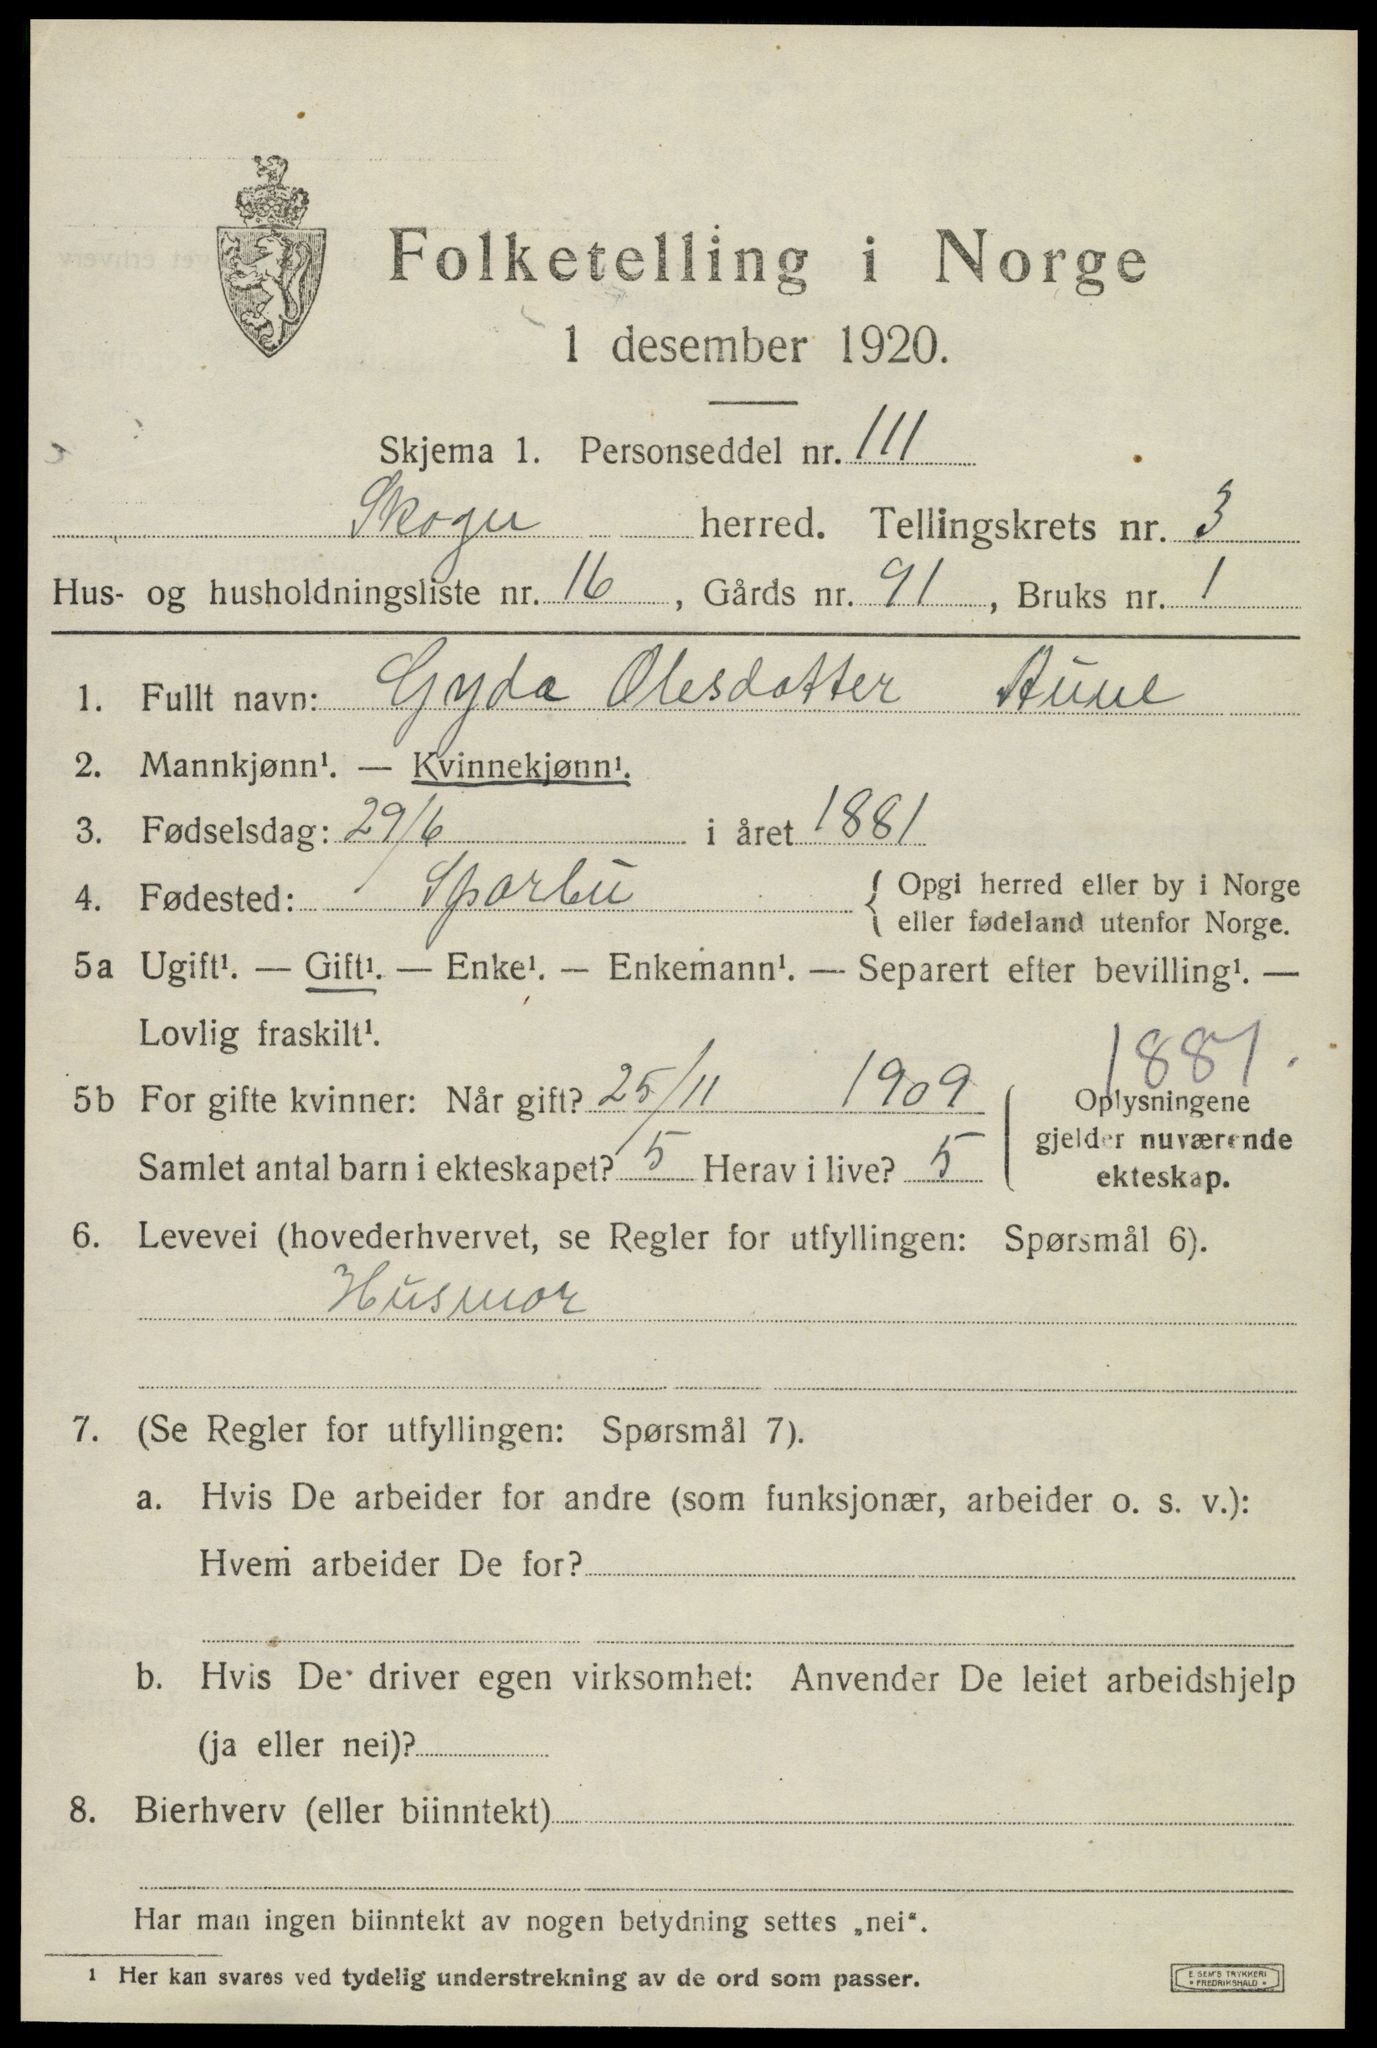 Folketelling i Norge
1 desember 1920.
Skjema 1. Personseddel nr. 111
Skogn herred. Tellingskrets nr. 3
Hus- og husholdningsliste nr. 16, Gårds nr. 91, Bruks nr. 1
1. Fullt navn: Gyda Olesdatter Aune
2. Mannkjønn¹. — Kvinnekjønn¹.
3. Fødselsdag: 29/6 i året 1881
4. Fødested: Sparbu { Opgi herred eller by i Norge
eller fødeland utenfor Norge.
5a Ugift¹. — Gift¹. — Enke¹. — Enkemann¹. — Separert efter bevilling¹. —
Lovlig fraskilt¹.
1881.
5b For gifte kvinner: Når gift? 25/11 1909 Oplysningene
gjelder nuværende
Samlet antal barn i ekteskapet? 5 Herav i live? 5 ekteskap.
6. Levevei (hovederhvervet, se Regler for utfyllingen: Spørsmål 6).
Husmor
7. (Se Regler for utfyllingen: Spørsmål 7).
a. Hvis De arbeider for andre (som funksjonær, arbeider o. s. v.):
Hvem arbeider De for?
b. Hvis De driver egen virksomhet: Anvender De leiet arbeidshjelp
(ja eller nei)?
8. Bierhverv (eller biinntekt)
Har man ingen biinntekt av nogen betydning settes „nei“.
1 Her kan svares ved tydelig understrekning av de ord som passer.
E. SEM'S TRYKKERI
• FREDRIKSHALD •